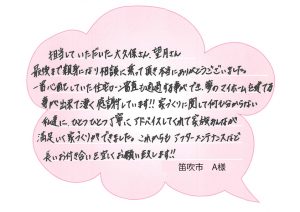 担当していただいた大久保さん、望月さん
最後まで親身になり相談に乗って頂き本当にありがとうございました。
一番心配していた住宅ローン審査も通過する事ができ、夢のマイホームを建てる
事が出来て凄く感謝しています!!家づくりに関して何も分からない
私達に、ひとつひとつ丁寧に、アドバイスしてくれて家族みんなが
満足いく家づくりができました。これからもアフターメンテナンスなど
長いお付き合いを宜しくお願い致します!!
笛吹市 A様